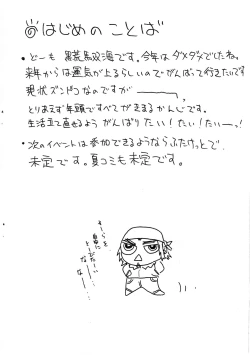 ◎はじめのことば
・どーも 黒荒馬双海です。今年はダメダメでしたね。
来年からは運気が上るらしいのでがんばって行きたいです
現状ズンドコなのですが ―――、
とりあえず年頭ですべてがきまるかんじです。
生活立て直せるよう がんばり たい!たい!たいーっ!
・次のイベントは参加できるようならふたけっとで。
未定です。夏コミも未定です。
そーらを
自由に
とーびたい
なーー…